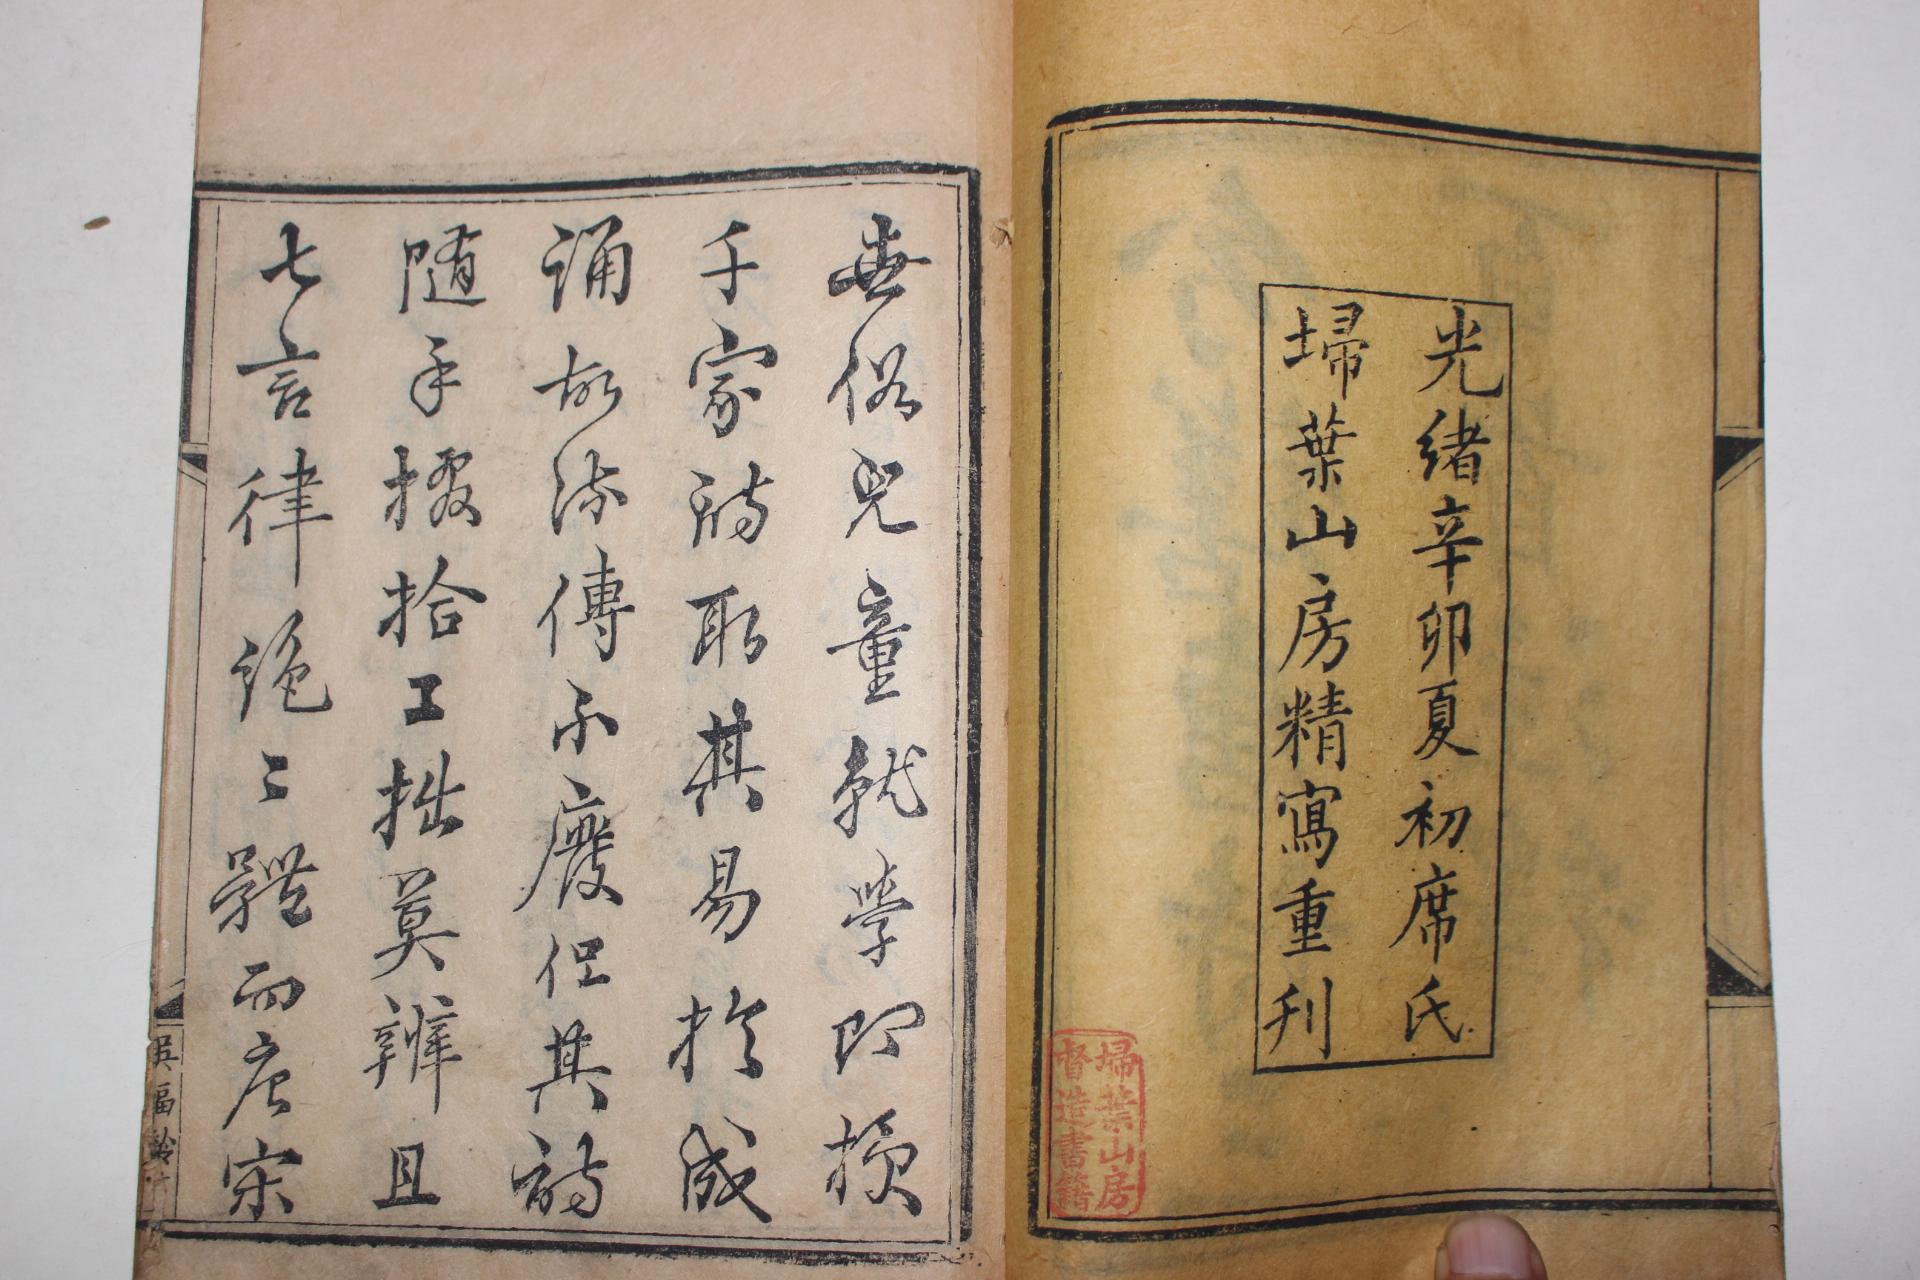 光緒辛卯夏初席氏
埽葉山房精寫重刋
埽葉山房
督造書籍
世俗兒童就學即授
千家詩取其易於成
誦故流傳不廢但其詩
隨手掇拾工拙莫辨且
七言律絕二體而唐宋
吳福齡